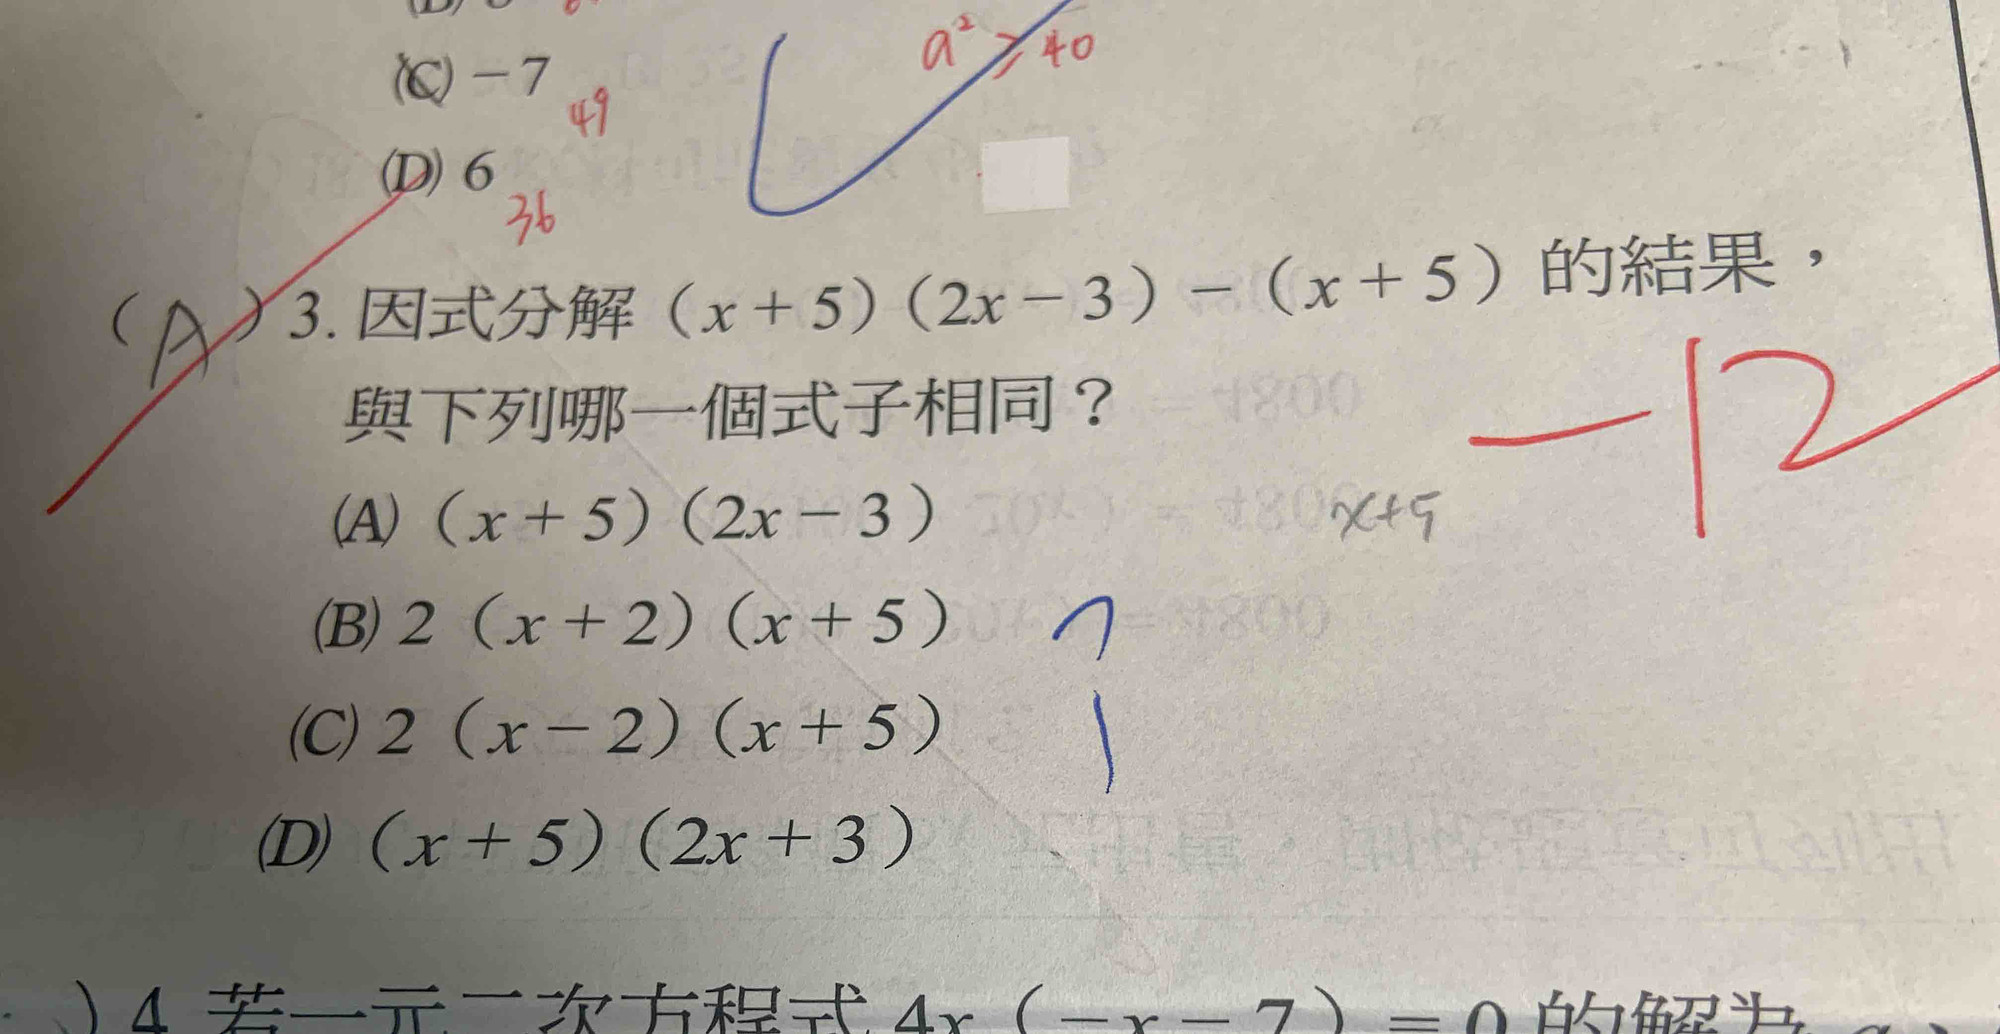 (C) －7
49
a² ≥ 40
(D) 6
36
（A）3. 因式分解（x＋5）（2x－3）－（x＋5）的結果，
與下列哪一個式子相同？
－12
(A)（x＋5）（2x－3）
x+5
(B) 2（x＋2）（x＋5）
(C) 2（x－2）（x＋5）
(D)（x＋5）（2x＋3）
）4 若一元二次方程式 4x（－x－7）＝0 的解為